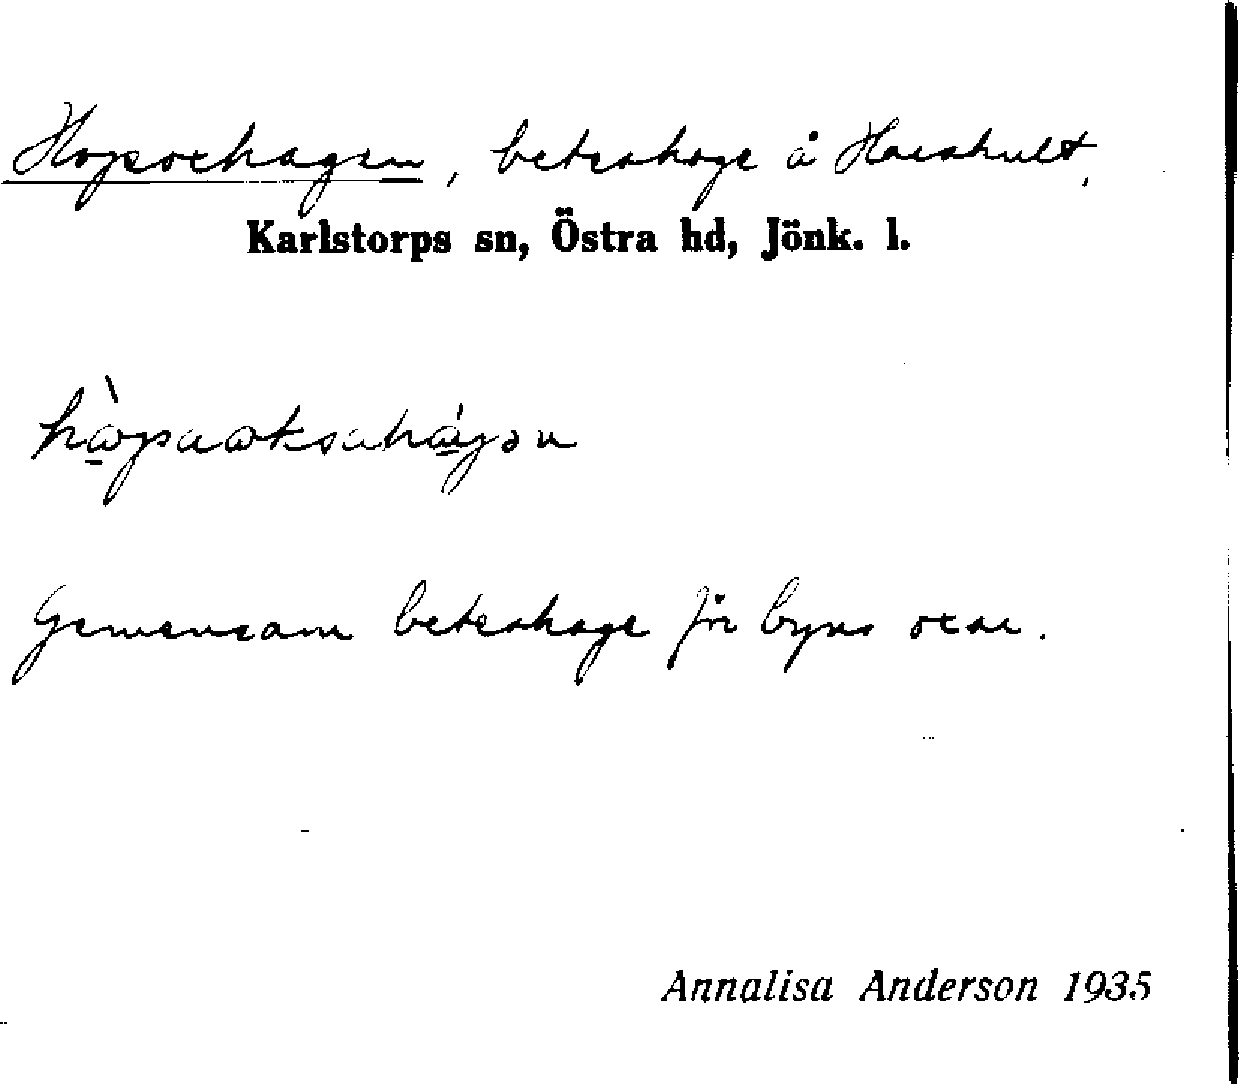 Hopsoxhagen, betsahage å Haeshult,
Karlstorps sn, Östra hd, Jönk. l.
Gemensam betsahage för byns oxar.
Annalisa Anderson 1935